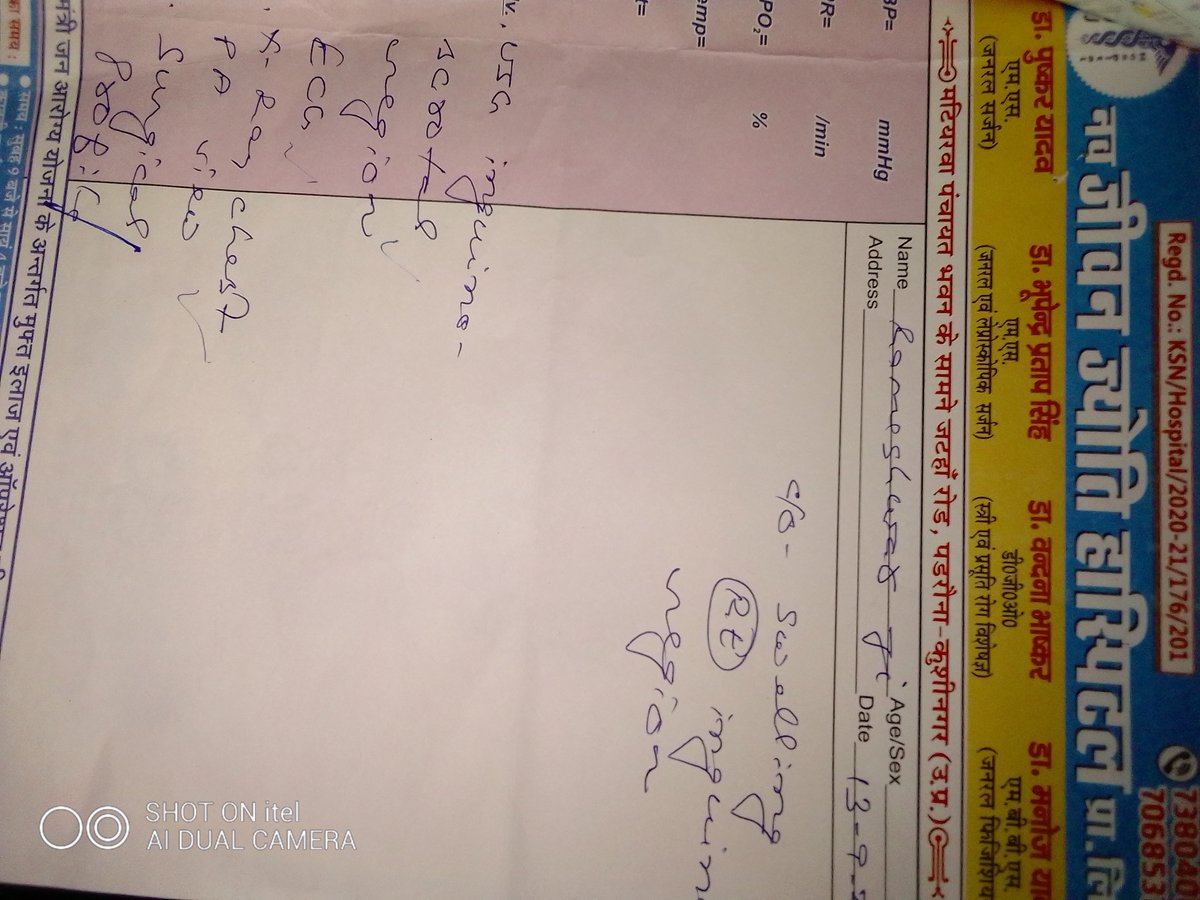 Regd. No.: KSN/Hospital/2020-21/176/201
नव जीवन ज्योति हास्पिटल प्रा.लि
738040
706853
डा. पुष्कर यादव
एम.एस.
(जनरल सर्जन)
डा. भुपेन्द्र प्रताप सिंह
एम.एस.
(जनरल एवं लेप्रोस्कोपिक सर्जन)
डा. वन्दना भाष्कर
डी०जी०ओ०
(स्त्री एवं प्रसुति रोग विशेषज्ञ)
डा. मनोज या
एम.बी.बी.एस.
(जनरल फिजिशिय
मटियरवा पंचायत भवन के सामने जटहाँ रोड, पडरौना-कुशीनगर (उ.प्र.)
BP= mmHg
PR= /min
PO₂= %
emp=
t=
Name Rameshwar Ji Age/Sex
Address Date 13-9-
C/O - Swelling
Rt inguin
region
USG inguino-
scrotal
region
ECG
X-Ray chest
PA view
Surgical
profile
मंत्री जन आरोग्य योजना के अन्तर्गत मुफ्त इलाज एवं ऑपरेशन
का समय :
समय : सुबह 9 बजे से सायं 4 बजे
SHOT ON itel
AI DUAL CAMERA